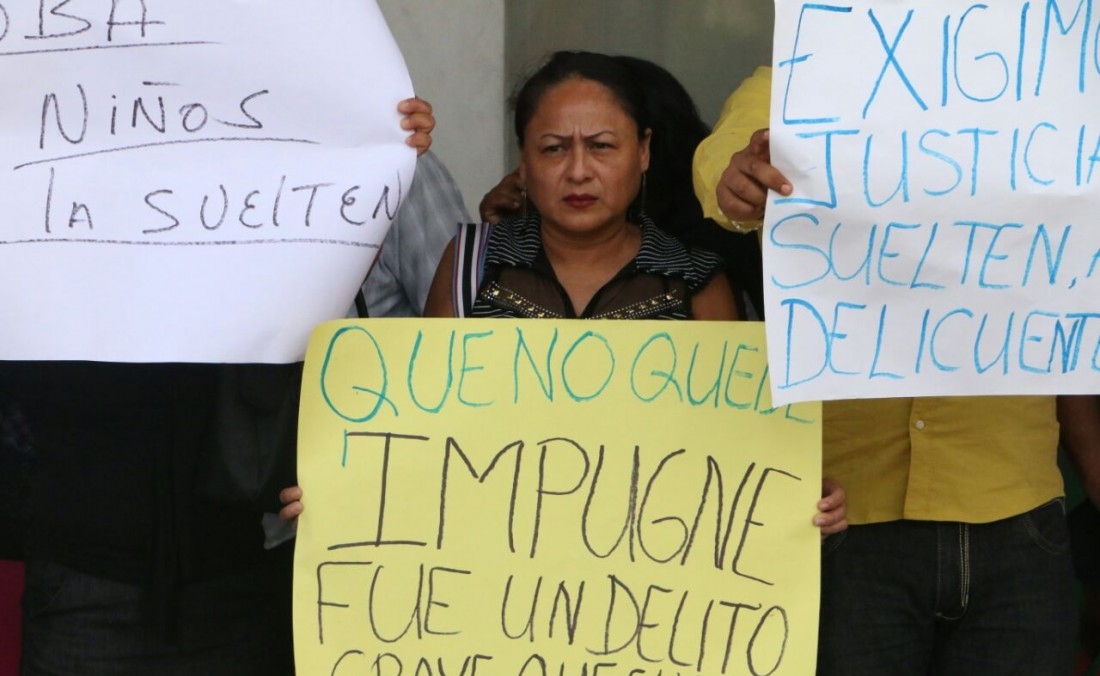 OBA
NIÑOS
lA SUELTEN
QUE NO QUEDE
IMPUGNE
FUE UN DELITO
GRAVE QUE
EXIGIMO
JUSTICIA
SUELTEN, A
DELICUENTE